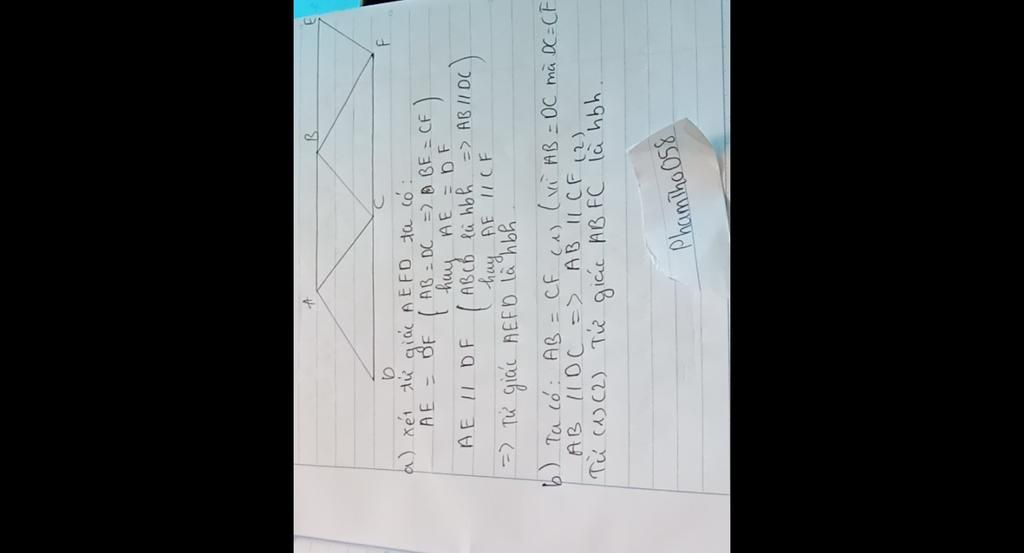 E
A B
F
D C
a) xét tứ giác AEFD ta có:
AE = DF ( AB = DC => BE = CF )
hay AE = DF
AE // DF ( ABCD là hbh => AB // DC )
hay AE // CF
=> Tứ giác AEFD là hbh.
b) Ta có: AB = CF (1) (vì AB = DC mà DC = CF
AB // DC => AB // CF (2)
Từ (1) (2) Tứ giác ABFC là hbh.
PhamTho058